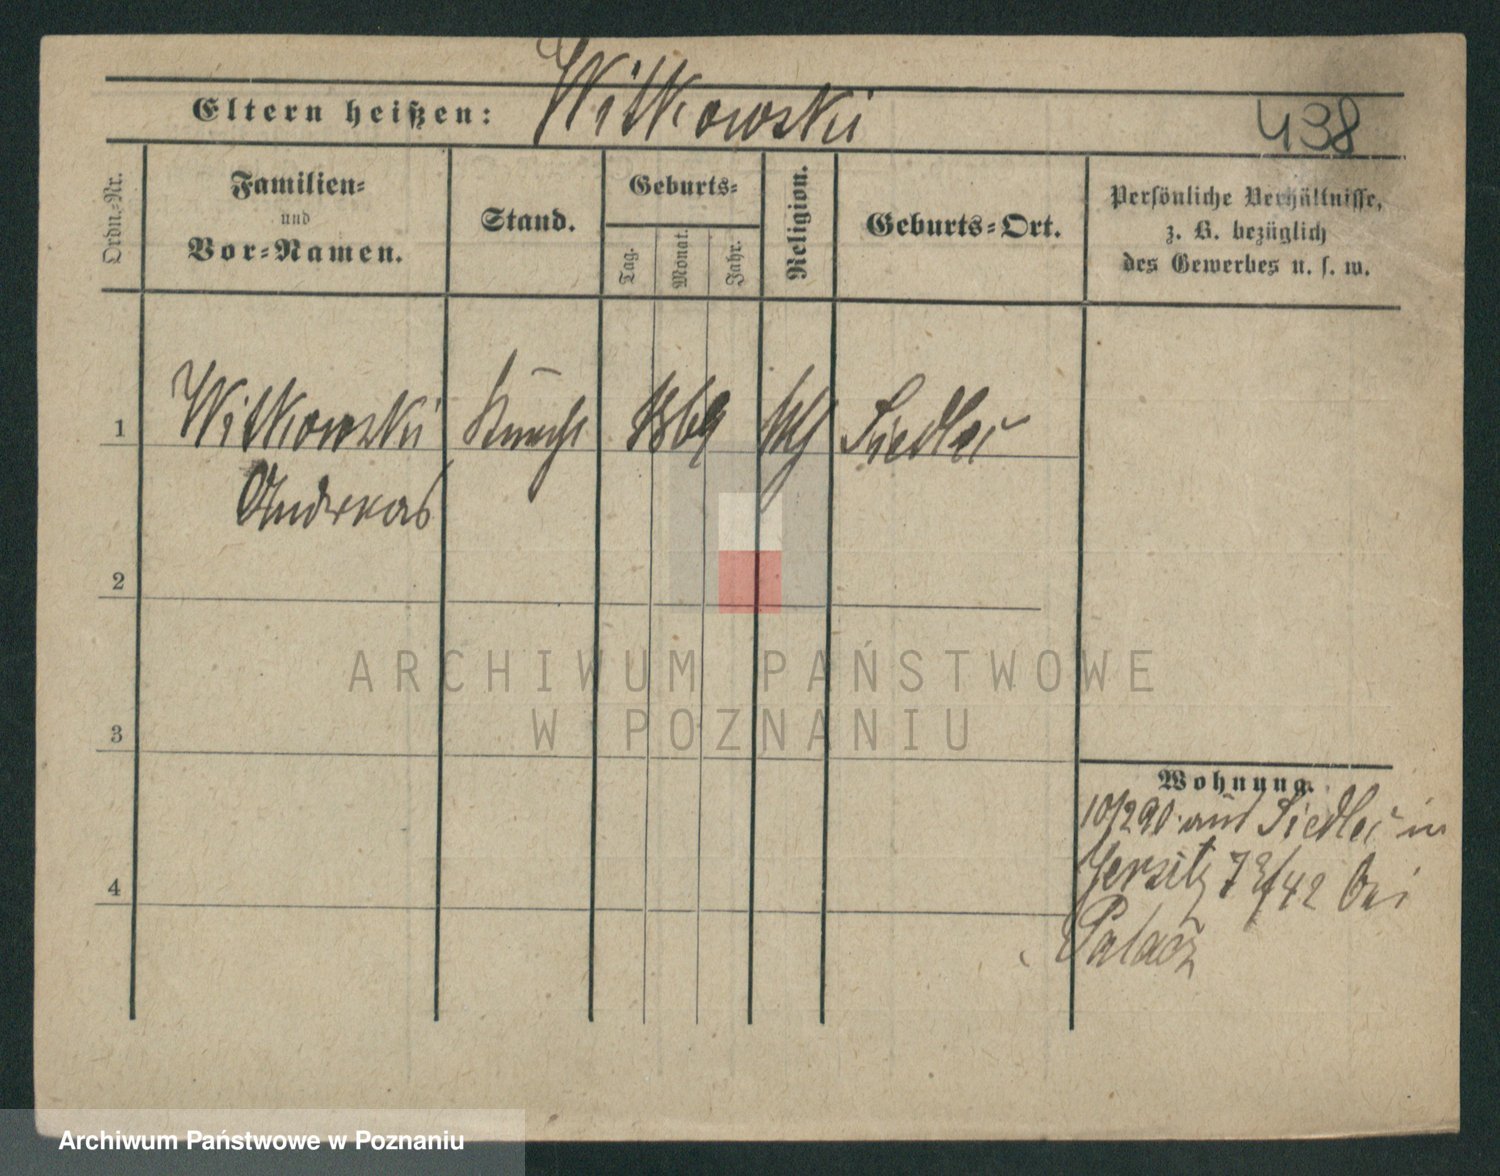 Eltern heißen: Witkowski
438
Ordn.-Nr.
Familien-
und
Vor-Namen.
Stand.
Geburts-
Tag.
Monat.
Jahr.
Religion.
Geburts-Ort.
Persönliche Verhältnisse,
z. B. bezüglich
des Gewerbes u. s. w.
1 Witkowski Knecht 1869 kth Siedlec
Andreas
2
3
4
Wohnung.
10/2 90. aus Siedlec in
Jersitz 42 bei
Palacz
ARCHIWUM PAŃSTWOWE
W POZNANIU
Archiwum Państwowe w Poznaniu